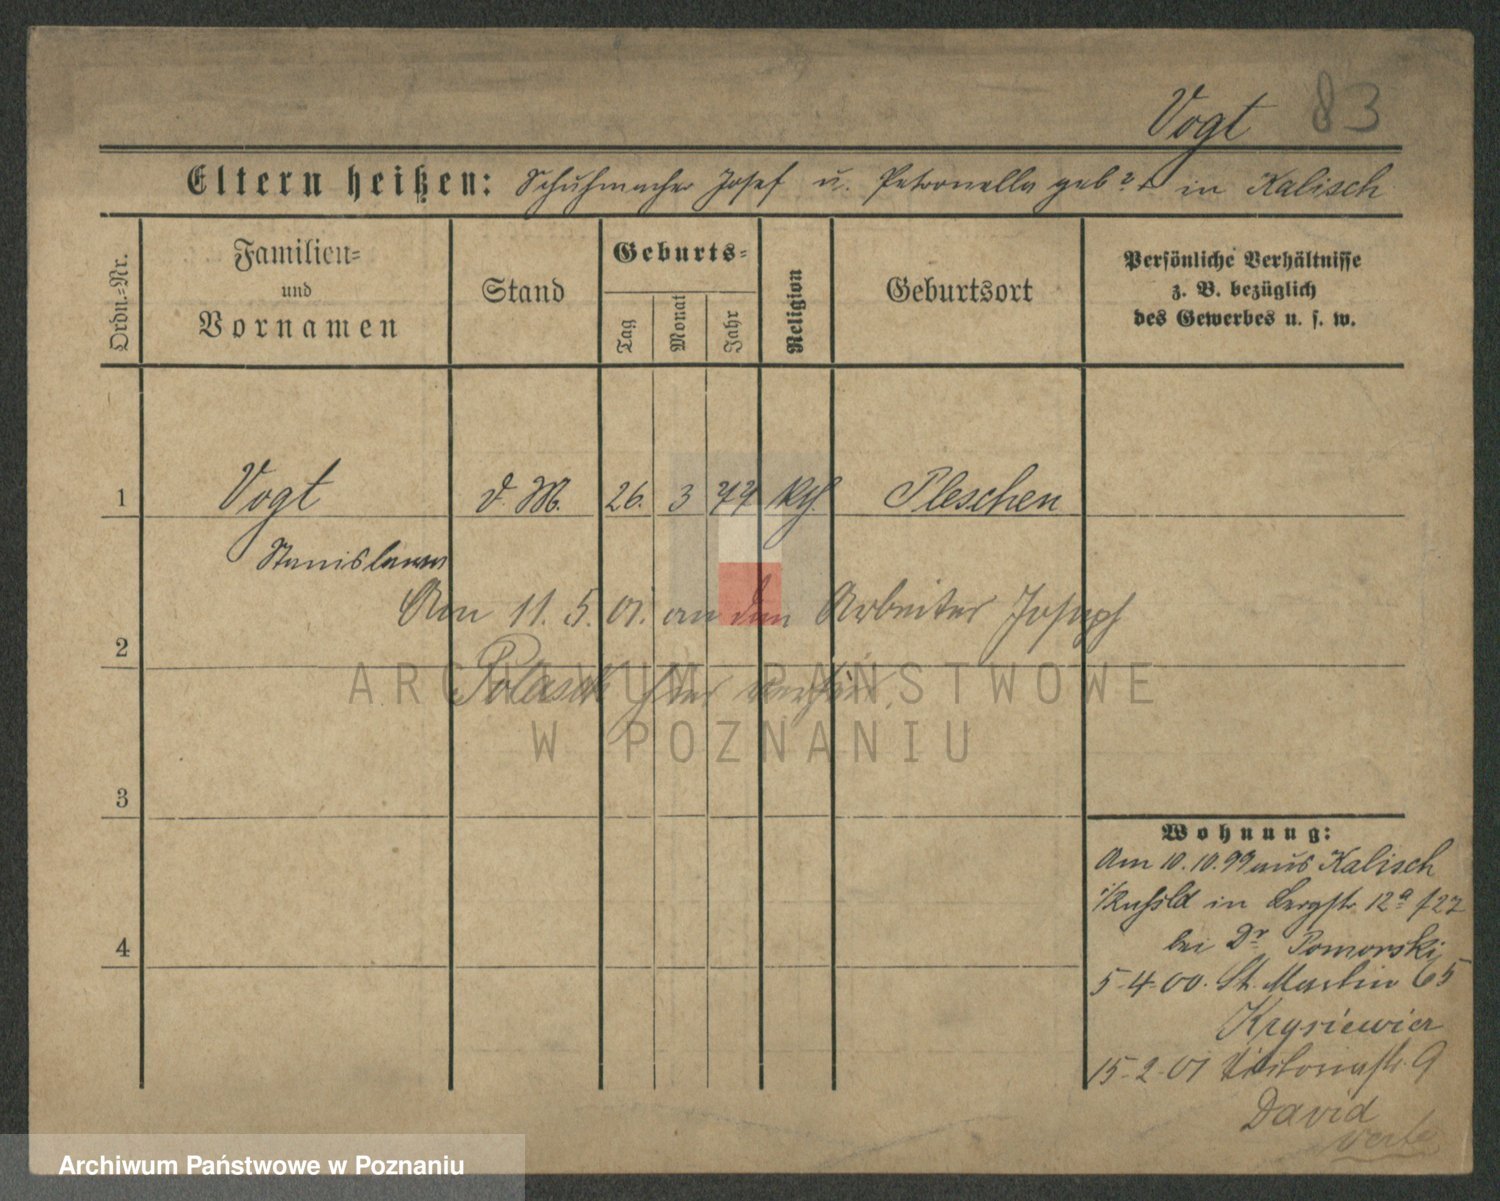 Vogt 83
Eltern heißen: Schuhmacher Josef u. Petronella geb ? in Kalisch
Ordn.-Nr.
Familien-
und
Vornamen
Stand
Geburts-
Tag
Monat
Jahr
Religion
Geburtsort
Persönliche Verhältnisse
z. B. bezüglich
des Gewerbes u. s. w.
1 Vogt d. M. 26. 3 77 kth. Pleschen
Stanislawa
Am 11. 5. 01. an den Arbeiter Joseph
2
Polasek hier verheir.
ARCHIWUM PAŃSTWOWE
W POZNANIU
3
Wohnung:
Am 10. 10. 99 aus Kalisch
i/Rußld in Bergstr. 12a
4
bei Dr. Pomorski
5-4-00. St. Martin 65
Krysiewicz
15-2-01 Viktoriastr. 9
David
Archiwum Państwowe w Poznaniu